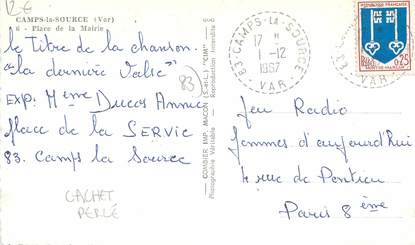 12€
CAMPS-la-SOURCE (Var)
6 - Place de la Mairie
le titre de la chanson.
"la dernière Valse"
83)
EXP. Mme Ducos Annie
place de la SERVIE
83. Camps la Source
CACHET
PERLÉ
COMBIER IMP. MACON (S.-et-L.) "CIM"
Photographie Véritable - Reproduction Interdite
83 - CAMPS-LA-SOURCE
17 H
1 -12
1967
VAR
REPUBLIQUE FRANÇAISE
0,25
MONT-DE-MARSAN
Jeu Radio
femmes d'aujourd'hui
4 rue de Penthieu
Paris 8ème